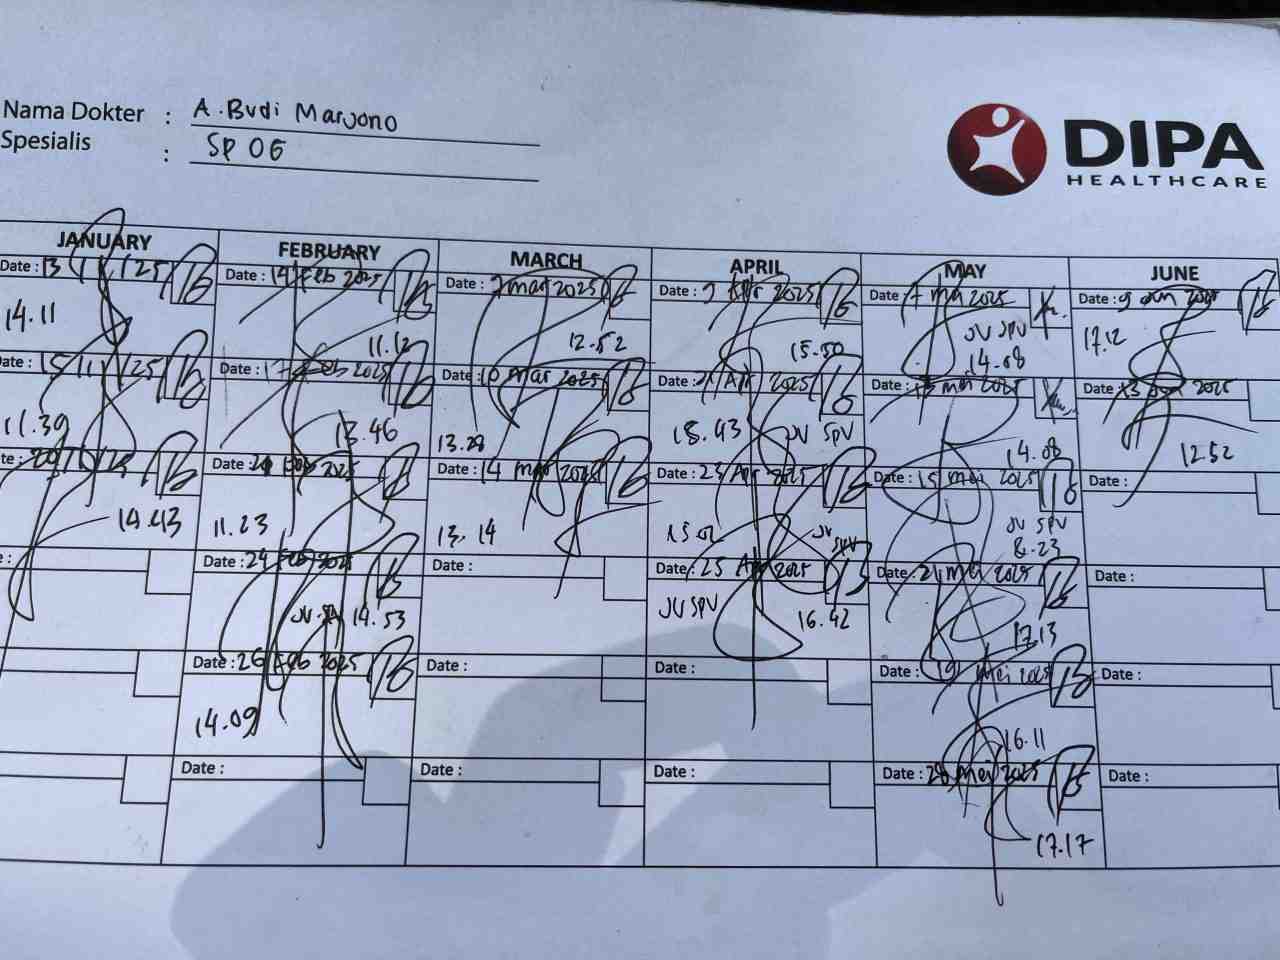 Nama Dokter : A. Budi Maryono
Spesialis : SP OG
DIPA
HEALTHCARE
JANUARY
Date : 13 / 1 / 25
14.11
Date : 15 / 1 / 25
11.39
14.43
FEBRUARY
Date : 14 Feb 2025
11.12
Date : 17 Feb 2025
13.46
Date : 20 Feb 2025
11.23
Date : 24 Feb 2025
14.53
Date : 26 Feb 2025
14.09
Date :
MARCH
Date : 7 mar 2025
12.52
Date : 10 mar 2025
13.28
Date : 14 mar 2025
13.14
Date :
Date :
Date :
APRIL
Date : 9 Apr 2025
15.50
Date : 21 Apr 2025
18.43 JV SPV
Date : 23 Apr 2025
15.02 JV SPV
Date : 25 Apr 2025
JV SPV 16.42
Date :
Date :
MAY
Date : 7 mei 2025
JV SPV
14.08
Date : 13 mei 2025
14.08
Date : 15 mei 2025
JV SPV
8.23
Date : 21 mei 2025
17.13
Date : 19 mei 2025
16.11
Date : 28 mei 2025
17.17
JUNE
Date : 9 Jun 2025
17.12
Date : 13 Jun 2025
12.52
Date :
Date :
Date :
Date :